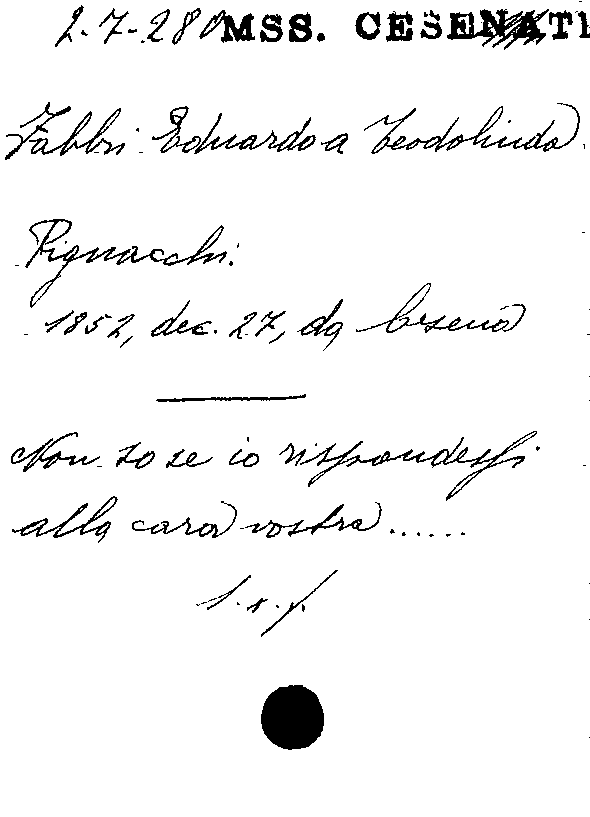 2-7-280 MSS. CESENATI
Fabbri Eduardo a Teodolinda
Pignacchi.
1852, dec. 27, da Cesena
Non so se io rispondessi
alla cara vostra ......